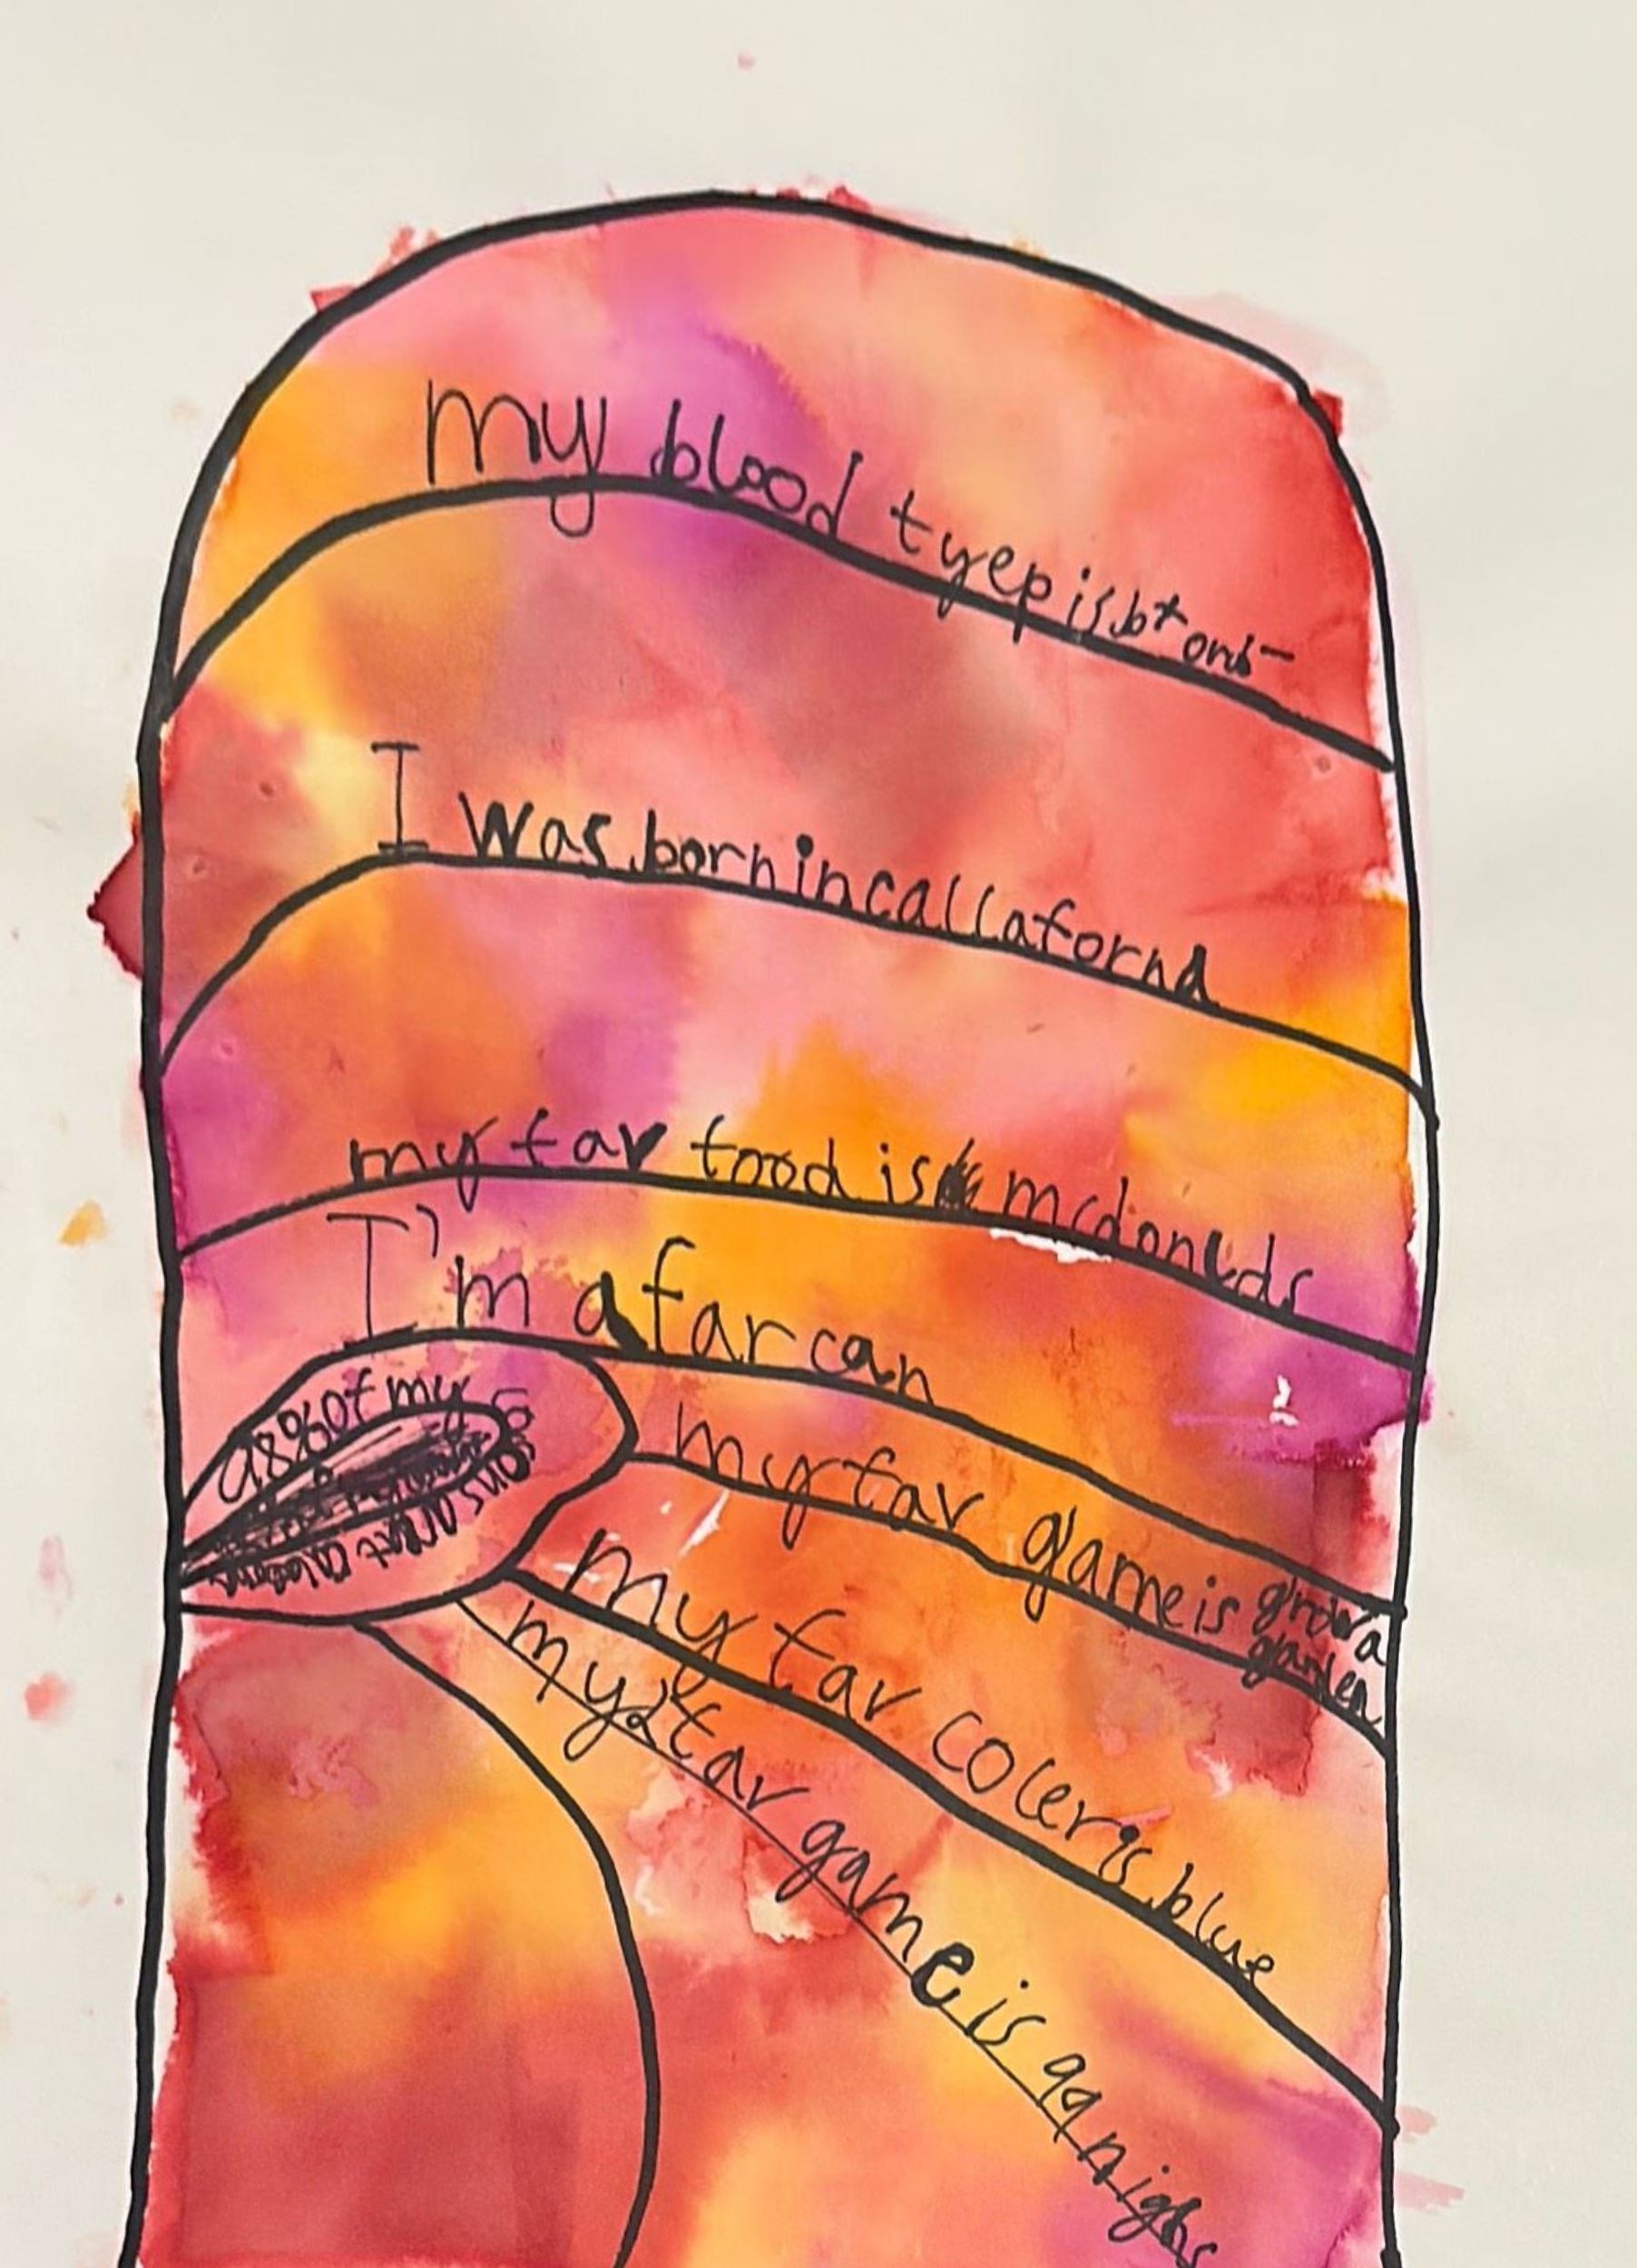 my blood tyep is b+ and -
I was born in callafornd
my fav food is mcdoneds
I'm afarcan
98% of my
my fav game is grow a
garden
my fav coler is blue
my 2 fav game is 99 nighs